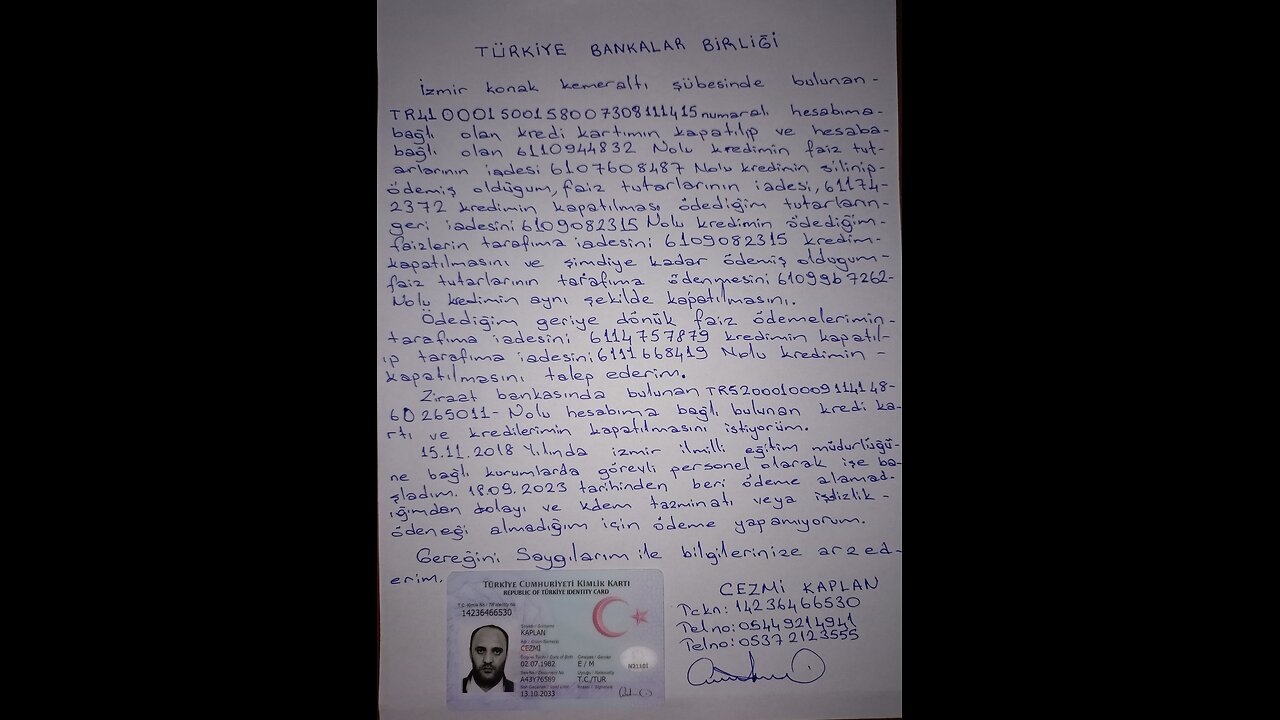 TÜRKİYE BANKALAR BİRLİĞİ
İzmir konak kemeraltı şübesinde bulunan-
TR410001500158007308111415 numaralı hesabıma-
bağlı olan kredi kartımın kapatılıp ve hesaba-
bağlı olan 6110944832 Nolu kredimin faiz tut-
arlarının iadesi 6107608487 Nolu kredimin silinip-
ödemiş oldüğum, faiz tutarlarının iadesi, 61174-
2372 kredimin kapatılması ödediğim tutarların-
geri iadesini 6109082315 Nolu kredimin ödediğim-
faizlerin tarafıma iadesini 6109082315 kredim-
kapatılmasını ve şimdiye kadar ödemiş oldugum-
faiz tutarlarının tarafıma ödenmesini 61099b7262-
Nolu kredimin aynı şekilde kapatılmasını.
Ödediğim geriye dönük faiz ödemelerimin-
tarafıma iadesini 6114757879 kredimin kapatıl-
ıp tarafıma iadesini 6111668419 Nolu kredimin -
kapatılmasını talep ederim.
Ziraat bankasında bulunan TR5200010009114148-
60265011- Nolu hesabıma bağlı bulunan kredi ka-
rtı ve kredilerimin kapatılmasını istiyorüm.
15.11.2018 Yılında izmir ilmilli eğitim müdürlüğü-
ne bağlı kurumlarda görevli personel olarak işe ba-
şladım. 18.09.2023 tarihinden beri ödeme alamad-
ığımdan dolayı ve kdem tazminatı veya işdizlik-
ödeneği almadığım için ödeme yapamıyorum.
Gereğini Saygılarım ile bilgilerinize arz ed-
erim.
TÜRKİYE CUMHURİYETİ KİMLİK KARTI
REPUBLIC OF TÜRKİYE IDENTITY CARD
T.C. Kimlik No / TR Identity No
14236466530
Soyadı / Surname
KAPLAN
Adı / Given Name(s)
CEZMİ
Doğum Tarihi / Date of Birth Cinsiyet / Gender
02.07.1982 E / M
Seri No / Document No Uyruğu / Nationality
A43Y76569 T.C./TUR
Son Geçerlilik / Valid Until İmzası / Signature
13.10.2033
CEZMİ KAPLAN
Tckn: 14236466530
Telno: 05449214941
Telno: 05372123555